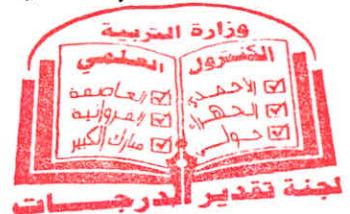 وزارة التربية
الكنترول العلمي
الأحمدي
الجهراء
حولي
العاصمة
الفروانية
مبارك الكبير
لجنة تقدير الدرجــــات